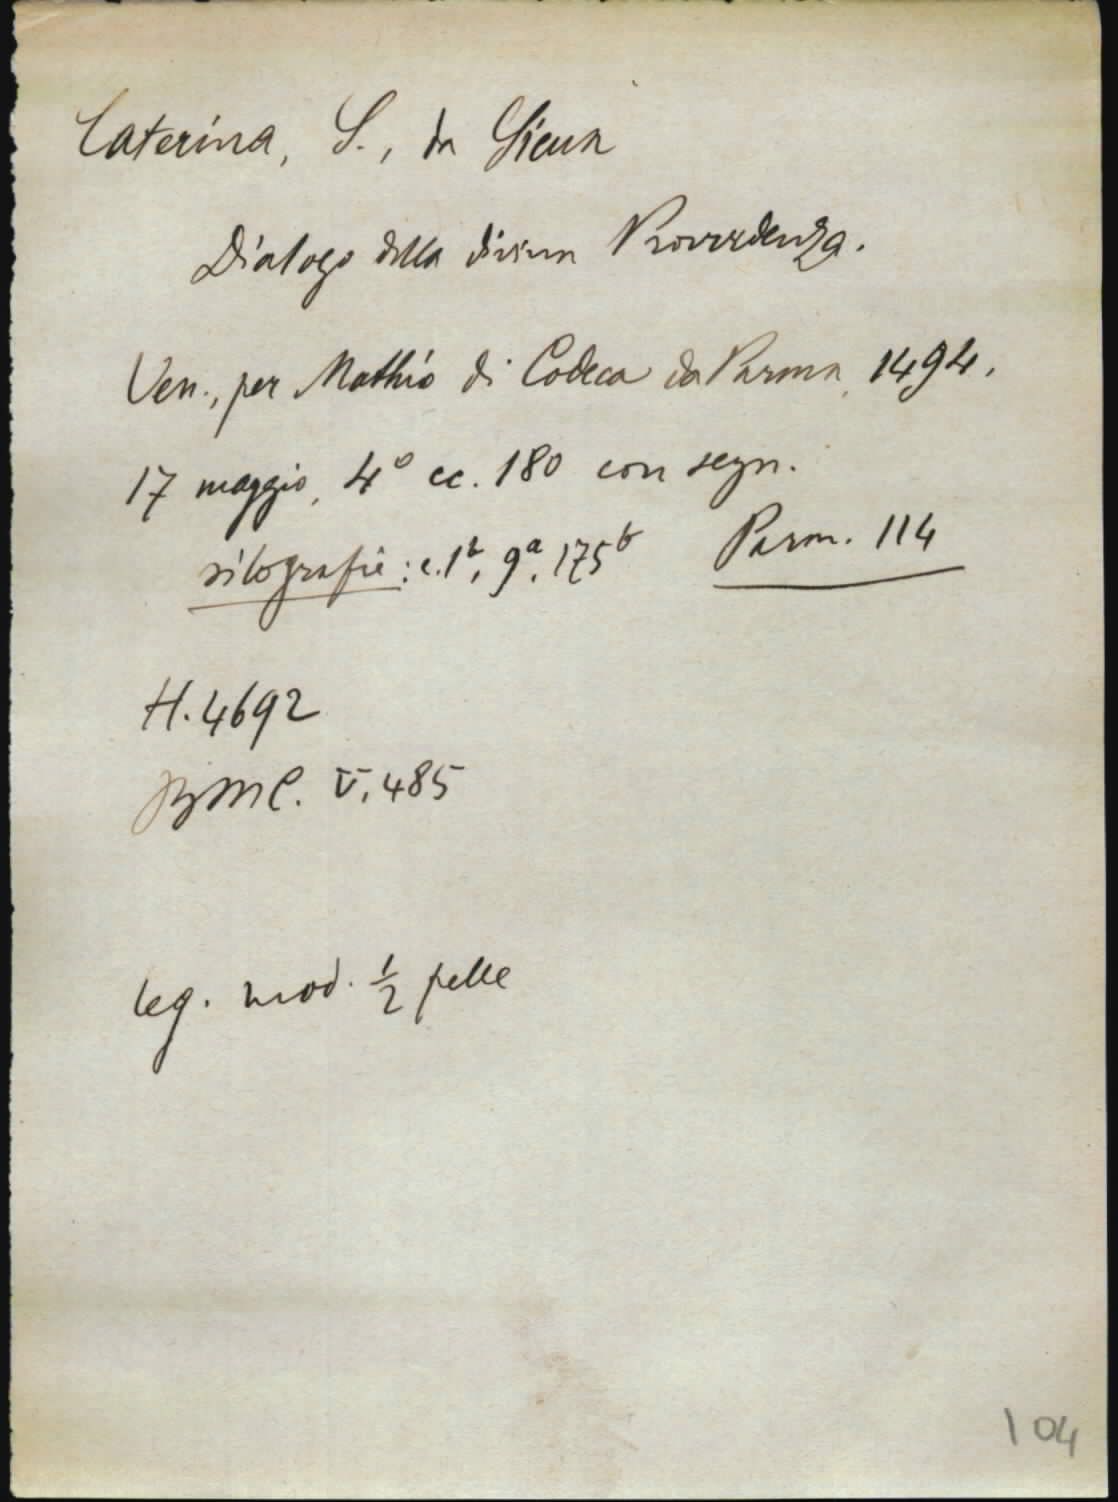 Caterina, S., da Siena
Dialogo della divina Providenza.
Ven., per Mathio di Codeca da Parma, 1494,
17 maggio, 4° cc. 180 con segn.
silografie: c. 1b, 9a, 175b Parm. 114
H. 4692
BMC. V, 485
leg. mod. ½ pelle
104